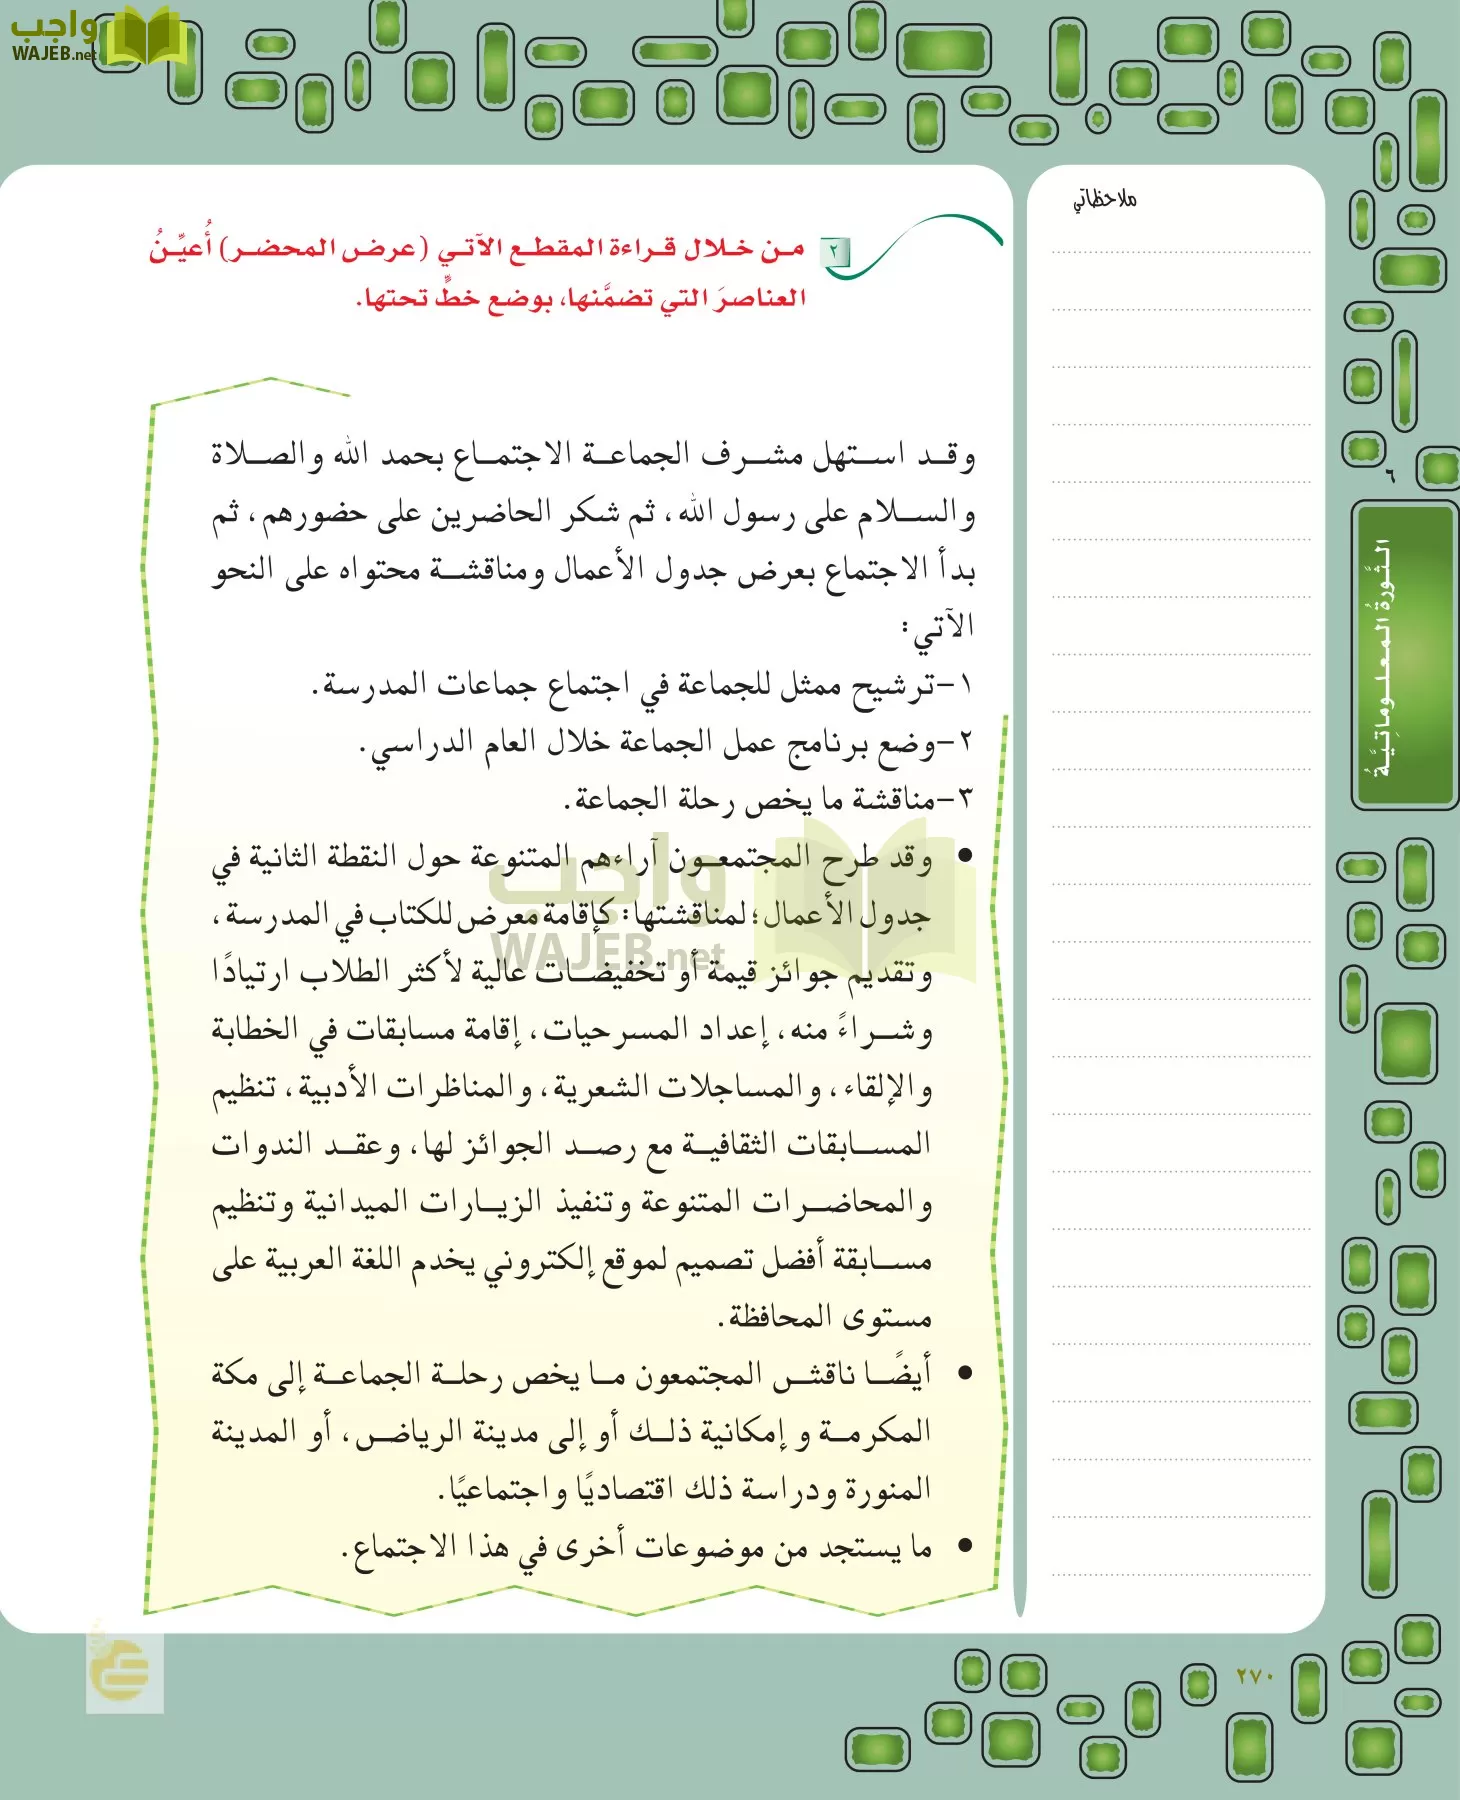 واجب
WAJEB.net
ملاحظاتي
٢
من خلال قراءة المقطع الآتي (عرض المحضر) أُعيِّنُ
العناصرَ التي تضمَّنها، بوضع خطٍّ تحتها.
وقد استهل مشرف الجماعة الاجتماع بحمد الله والصلاة
والسلام على رسول الله، ثم شكر الحاضرين على حضورهم، ثم
بدأ الاجتماع بعرض جدول الأعمال ومناقشة محتواه على النحو
الآتي:
١-ترشيح ممثل للجماعة في اجتماع جماعات المدرسة.
٢-وضع برنامج عمل الجماعة خلال العام الدراسي.
٣-مناقشة ما يخص رحلة الجماعة.
• وقد طرح المجتمعون آراءهم المتنوعة حول النقطة الثانية في
جدول الأعمال؛ لمناقشتها: كإقامة معرض للكتاب في المدرسة،
وتقديم جوائز قيمة أو تخفيضات عالية لأكثر الطلاب ارتيادًا
وشراءً منه، إعداد المسرحيات، إقامة مسابقات في الخطابة
والإلقاء، والمساجلات الشعرية، والمناظرات الأدبية، تنظيم
المسابقات الثقافية مع رصد الجوائز لها، وعقد الندوات
والمحاضرات المتنوعة وتنفيذ الزيارات الميدانية وتنظيم
مسابقة أفضل تصميم لموقع إلكتروني يخدم اللغة العربية على
مستوى المحافظة.
• أيضًا ناقش المجتمعون ما يخص رحلة الجماعة إلى مكة
المكرمة وإمكانية ذلك أو إلى مدينة الرياض، أو المدينة
المنورة ودراسة ذلك اقتصاديًا واجتماعيًا.
• ما يستجد من موضوعات أخرى في هذا الاجتماع.
واجب
WAJEB.net
٦
الثَّورةُ المعلوماتِيَّةُ
٢٧٠